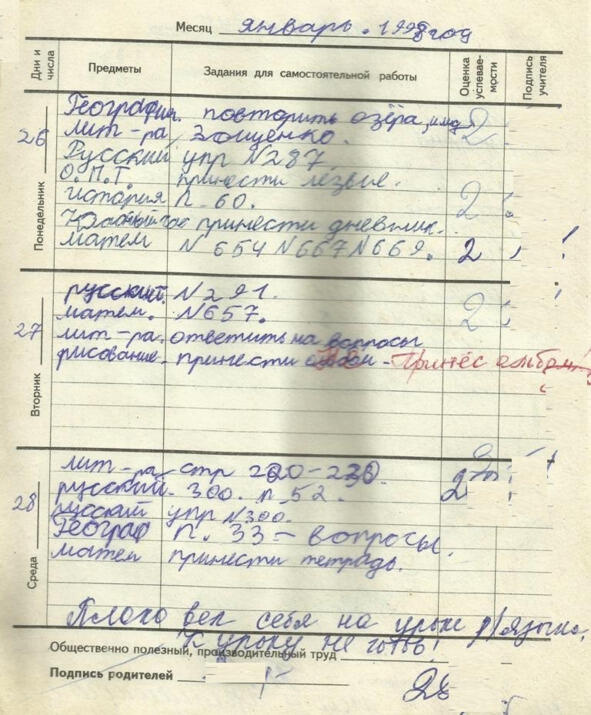 Месяц январь. 1998 год
Дни и числа
Предметы
Задания для самостоятельной работы
Оценка успевае-мости
Подпись учителя
26
Понедельник
География. повторить озёра, 2
лит-ра. Зощенко.
Русский упр N287
О.П.Т. принести лезвие.
история п. 60. 2
Классный час принести дневник.
матем N 654 N667 N669. 2
27
Вторник
русский. N291. 2
матем. N657.
лит-ра. ответить на вопросы
рисование. принести - Принёс альбом!
28
Среда
лит-ра стр 220-230.
русский. 300. п 52. 2
русский упр N300.
Географ п. 33 - вопросы.
матем принести тетрадь.
Плохо вел себя на уроке р/языка,
К уроку не готов!
Общественно полезный, производительный труд
Подпись родителей
28